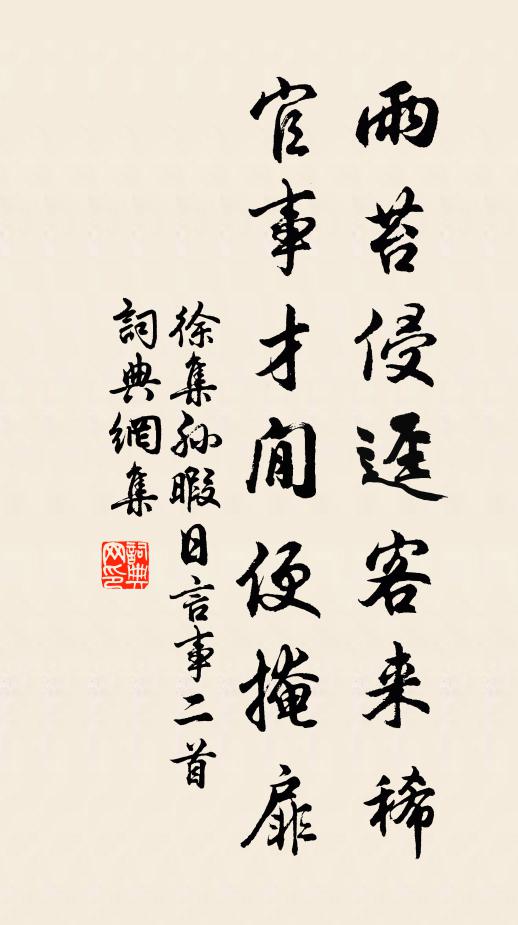 雨苔侵逕客来稀
官事才閒便掩扉
徐集孫暇日言事二首
詞典網集
詞典网印